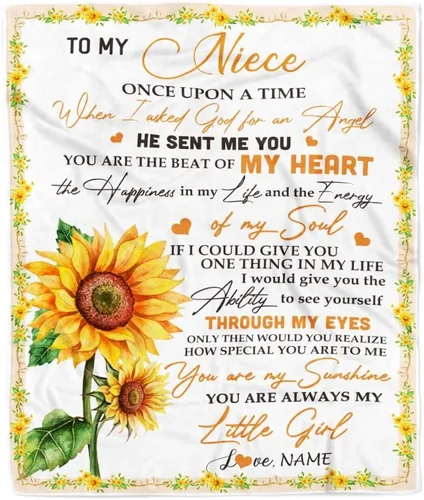 TO MY Niece
ONCE UPON A TIME
When I asked God for an Angel
HE SENT ME YOU
YOU ARE THE BEAT OF MY HEART
the Happiness in my Life and the Energy
of my Soul
IF I COULD GIVE YOU
ONE THING IN MY LIFE
I would give you the
Ability to see yourself
THROUGH MY EYES
ONLY THEN WOULD YOU REALIZE
HOW SPECIAL YOU ARE TO ME
You are my Sunshine
YOU ARE ALWAYS MY
Little Girl
Love, NAME